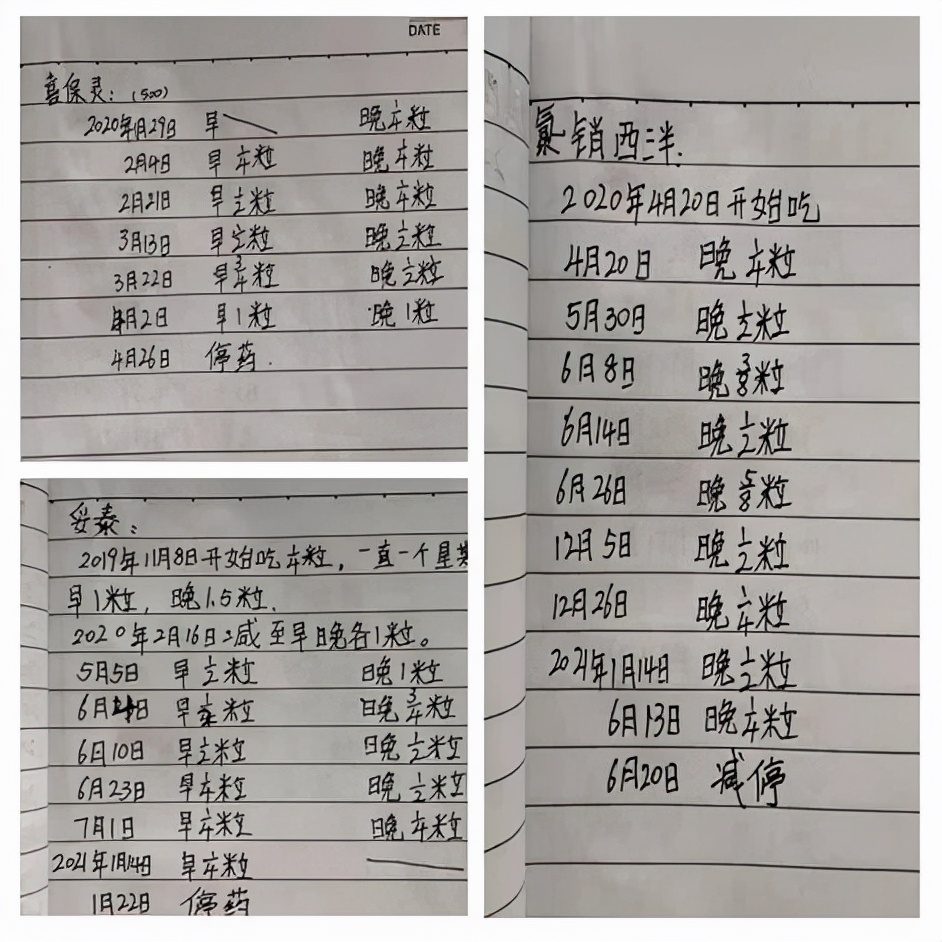 DATE
喜保灵：(500)
2020年1月29日 早 晚¼粒
2月4日 早¼粒 晚¼粒
2月21日 早½粒 晚¼粒
3月13日 早½粒 晚½粒
3月22日 早¾粒 晚½粒
4月2日 早1粒 晚1粒
4月26日 停药.
妥泰：
2019年11月8日开始吃¼粒，一直一个星
早1粒，晚1.5粒.
2020年2月16日减至早晚各1粒。
5月5日 早½粒 晚1粒
6月 日 早 粒 晚¾粒
6月10日 早½粒 晚½粒
6月23日 早¼粒 晚½粒
7月1日 早¼粒 晚¼粒
2021年1月14日 早¼粒
1月22日 停药
氯销西泮.
2020年4月20日开始吃
4月20日 晚¼粒
5月30日 晚½粒
6月8日 晚⅜粒
6月14日 晚½粒
6月26日 晚⅝粒
12月5日 晚½粒
12月26日 晚¼粒
2021年1月14日 晚½粒
6月13日 晚¼粒
6月20日 减停